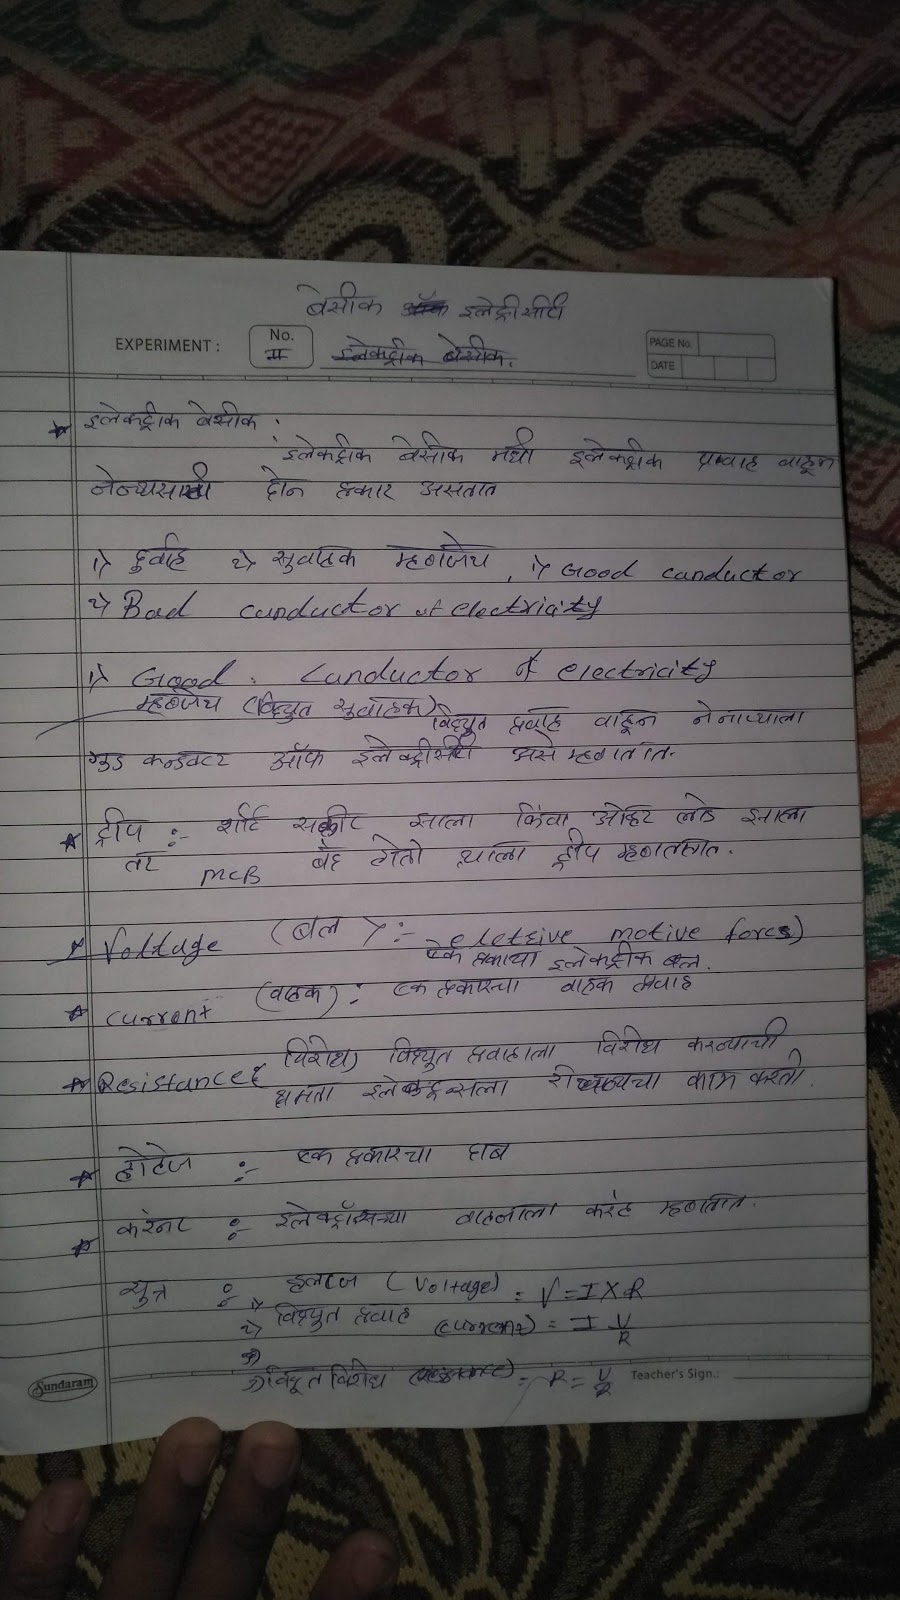 बेसीक इलेट्रीसीटी
EXPERIMENT : No. इलेक्ट्रीक बेसीक.
PAGE No.
DATE
* इलेक्ट्रीक बेसीक :
इलेक्ट्रीक बेसीक मधी इलेक्ट्रीक प्रवाह वाहून
नेन्यासाठी दोन प्रकार असतात
१) दुर्वाह २) सुवाहक म्हणजेच, १) Good conductor
२) Bad conductor of electricity
१) Good. Conductor of electricity
म्हणजेच (विद्युत सुवाहक) विद्युत प्रवाह वाहून नेनाऱ्याला
गुड कन्डक्टर ऑफ इलेक्ट्रीसीटी असे म्हणतात.
* ट्रीप :- शॉर्ट सर्कीट झाला किंवा ओव्हर लोड झाला
तर MCB बंद होतो त्याला ट्रीप म्हणतात.
* Voltage (बल) :- motive forces)
एक प्रकारचा इलेक्ट्रीक बल.
* current (वाहक) : एक प्रकारचा वाहक प्रवाह
* Resistance (विरोध) विद्युत प्रवाहाला विरोध करन्याची
क्षमता काम करतो.
* होल्टेज :- एक प्रकारचा दाब
* करंन्ट :- वाहनाला करंट म्हणतात.
सुत्र : (Voltage) = V = I X R
२) विद्युत प्रवाह (current) = I V/R
३) विद्युत विरोध = R = V/
Sundaram
Teacher's Sign.: